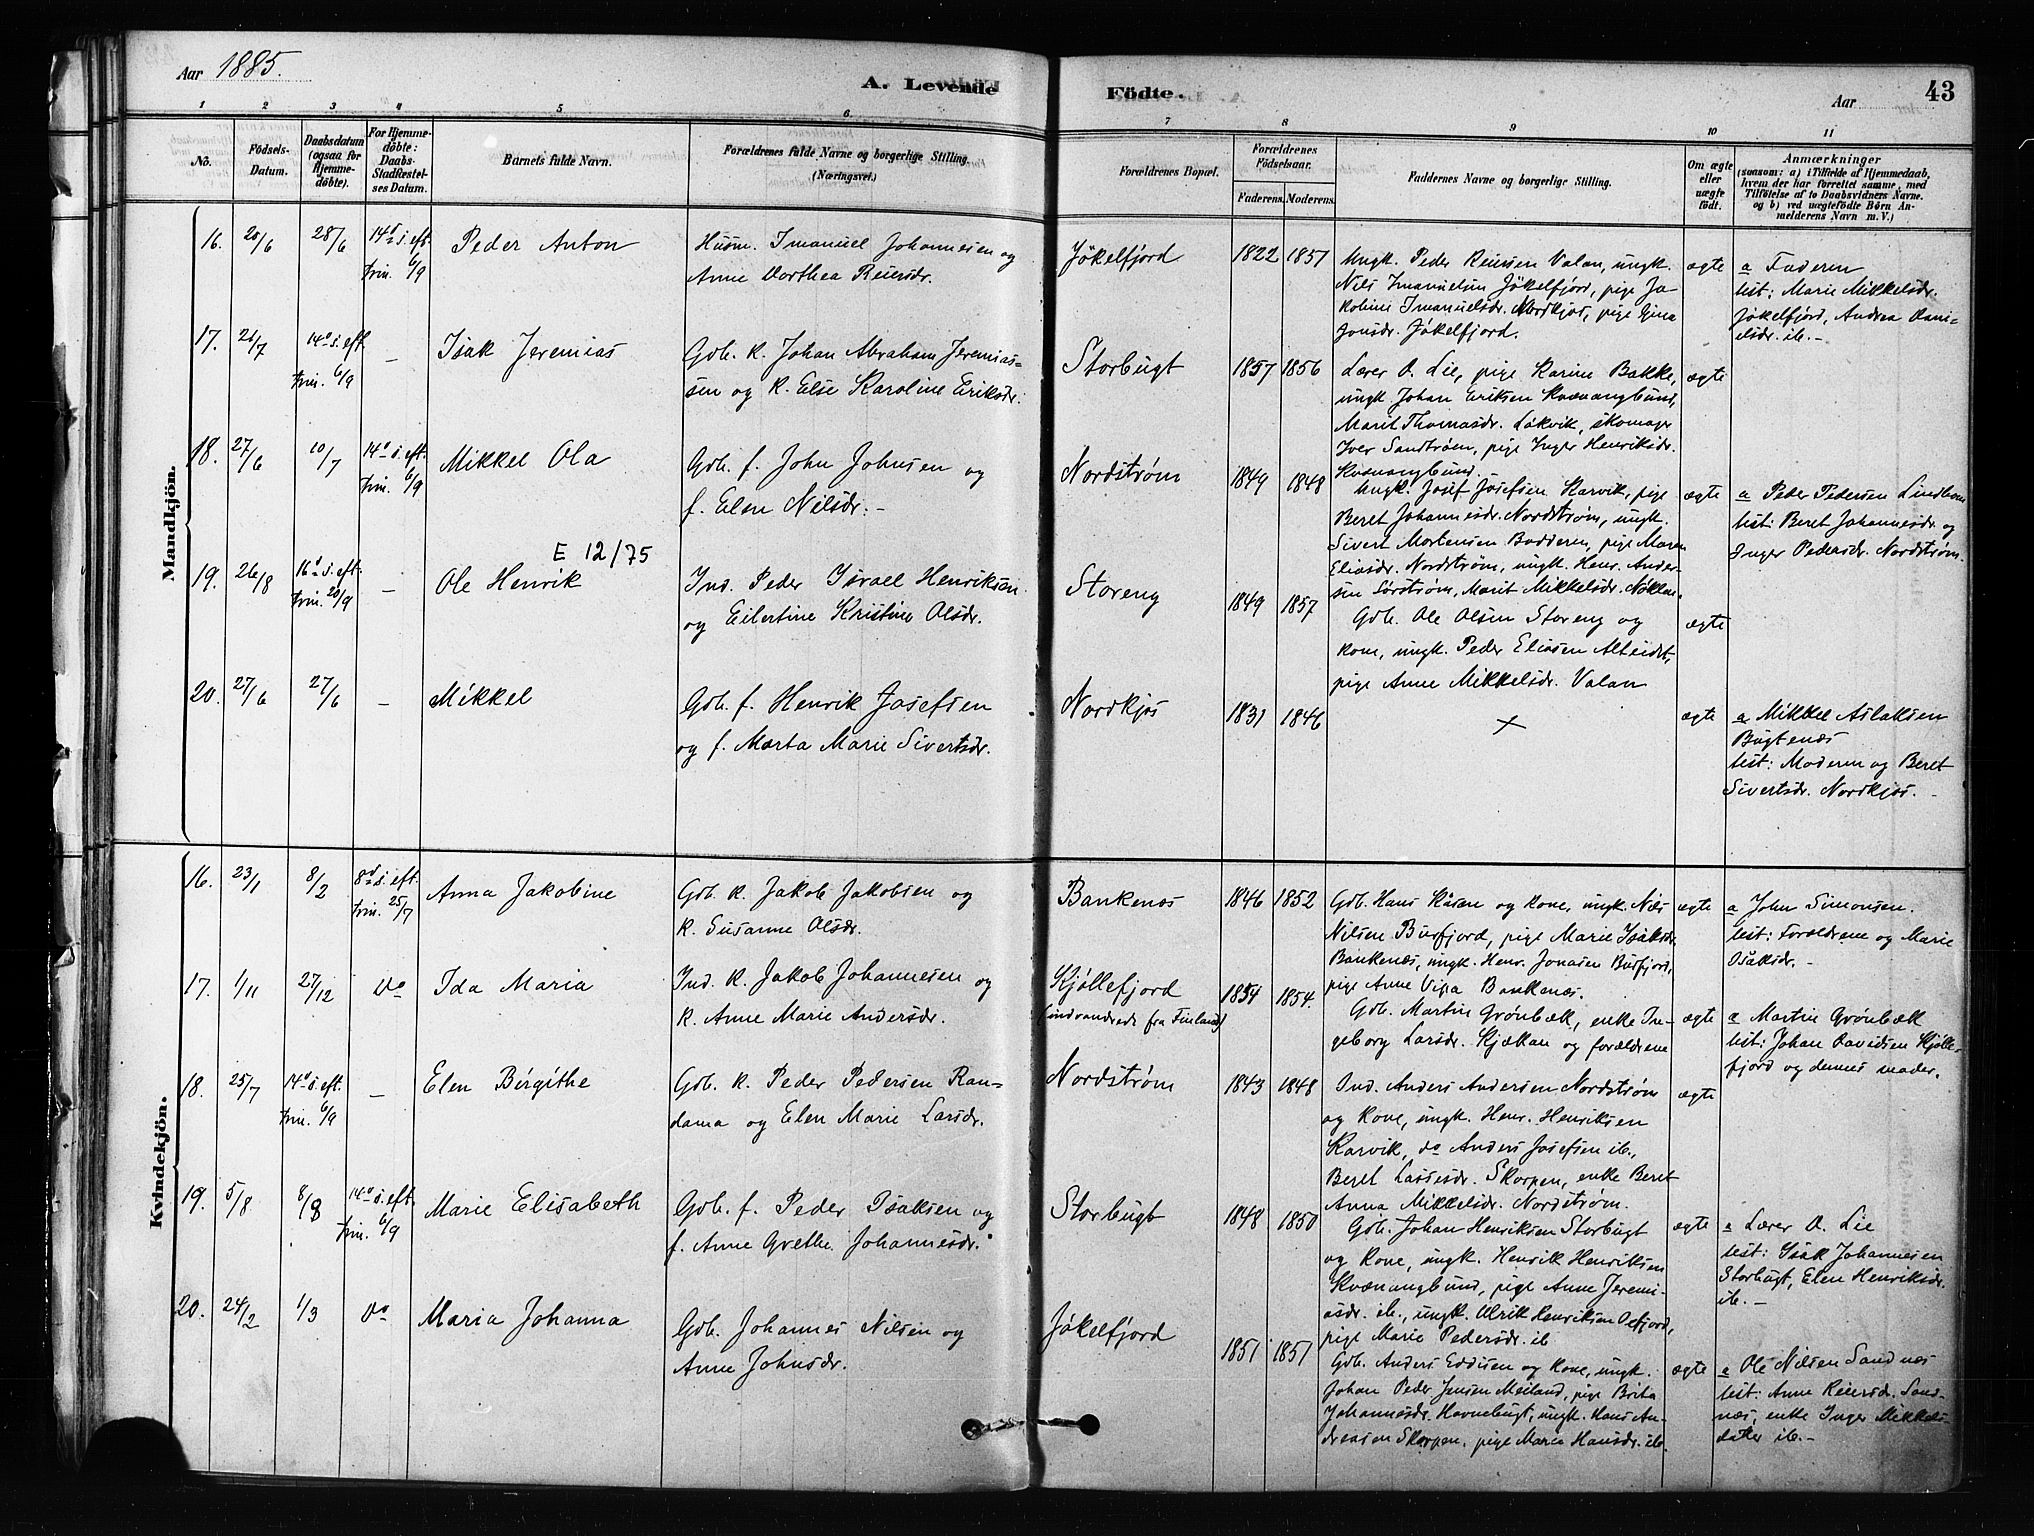 Aar 1885.
A. Levende
Födte.
Aar
43
1 2 3 4 5 6 7 8 9 10 11
No.
Födsels-
Datum.
Daabsdatum
(ogsaa for
Hjemme-
döbte).
For Hjemme-
döbte:
Daabs-
Stadfæstel-
ses Datum.
Barnets fulde Navn.
Forældrenes fulde Navne og borgerlige Stilling.
(Næringsvei.)
Forældrenes Bopæl.
Forældrenes
Födselsaar.
Faderens. Moderens.
Faddernes Navne og borgerlige Stilling.
Om ægte
eller
uægte
födt.
Anmærkninger
(saasom: a) i Tilfælde af Hjemmedaab,
hvem der har forrettet samme, med
Tilföielse af to Daabsvidners Navne.
og b) ved uægtefödte Börn An-
melderens Navn m. V.)
Mandkjön.
16. 20/6 28/6 14d s. eft.
trin. 6/9
Peder Anton
Husm. Imanuel Johannesen og
Anne Dorthea Reiersdr.
Jøkelfjord
1822 1857
Ungk. Peder Reiersen Valan, ungk.
Nils Imanuelsen Jøkelfjord, pige Ja-
kobine Imanuelsdr. Nordkjos, pige
Jonsdr. Jøkelfjord.
ægte
a Faderen
test: Marie Mikkelsdr.
Jøkelfjord, Andrea Dani-
elsdr. ib. -
17. 21/7 14d s. eft
trin. 6/9
-
Isak Jeremias
Gdb. k. Johan Abraham Jeremias-
sen og k. Else Karoline Eriksdr.
Storbugt
1857 1856
Lærer O. Lie, pige Karine Bakke,
ungk. Johan Eriksen Kvænangbund,
Marit Thomasdr. Låkvik, skomager
Iver Sandstrøm, pige Inger Henriksdr.
Kvænangbund.
ægte
18. 27/6 10/7 14d s. eft.
trin. 6/9
Mikkel Ola
Gdb. f. John Johnsen og
f. Elen Nilsdr. -
Nordstrøm
1849 1848
Ungk. Josef Josefsen Karvik, pige
Beret Johannesdr. Nordstrøm, ungk.
Sivert Mortensen Badderen, pige Maren
Eliasdr. Nordstrøm, ungk. Henr. Ander-
sen Sørstrøm, Marit Mikkelsdr.
ægte
a Peder Pedersen Lindbom
test: Beret Johannesdr. og
Inger Pedersdr. Nordstrøm.
E 12/75
19. 26/8 16d s. eft.
trin. 20/9
-
Ole Henrik
Ind. Peder Israel Henriksen
og Eilertine Kristine Olsdr.
Storeng
1849 1857
Gdb. Ole Olsen Storeng og
kone, ungk. Peder Eliasen Alteidet,
pige Anne Mikkelsdr. Valan
ægte
20. 27/6 27/6 -
Mikkel
Gdb. f. Henrik Josefsen
og f. Marta Marie Sivertsdr.
Nordkjos
1831 1846
×
ægte
a Mikkel Aslaksen
Bugtenæs
test: Moderen og Beret
Sivertsdr. Nordkjos. -
Kvindekjön.
16. 23/1 8/2 8d s. eft.
trin. 25/7
Anna Jakobine
Gdb. k. Jakob Jakobsen og
k. Susanne Olsdr.
Bankenæs
1846 1852
Gdb. Hans Kåsen og kone, ungk. Nils
Nilsen Burfjord, pige Marie Isaksdr.
Bankenæs, ungk. Henr. Jonasen Burfjord,
pige Anne Bankenæs.
ægte
a John Simonsen.
test: Forældrene og Marie
Isaksdr. -
17. 1/11 27/12 Do
Ida Maria
Ind. k. Jakob Johannesen og
k. Anne Marie Andersdr.
Kjøllefjord
(indvandrede fra Finland)
1854 1854.
Gdb. Martin Grönbæk, enke In-
geborg Larsdr. Kjækan og forældrene
ægte
a Martin Grönbæk
test: Johan Davidsen Kjølle-
fjord og dennes moder.
18. 25/7 14d s. eft.
trin. 6/9
-
Elen Birgithe
Gdb. k. Peder Pedersen Ran-
dama og Elen Marie Larsdr.
Nordstrøm
1843 1848
Ind. Anders Andersen Nordstrøm
og kone, ungk. Henr. Henriksen
Karvik, do Anders Josefsen ib.,
Beret Lassesdr. Skorpen, enke Beret
Anna Mikkelsdr. Nordstrøm.
ægte
19. 5/8 8/8 14d s. eft.
trin. 6/9
Marie Elisabeth
Gdb. f. Peder Isaksen og
f. Anne Grethe Johannesdr.
Storbugt
1848 1850
Gdb. Johan Henriksen Storbugt
og kone, ungk. Henrik Henriksen
Kvænangbund, pige Anne Jeremi-
asdr. ib., ungk. Ulrik Henriksen Olefjord,
pige Marie Pedersdr. ib
ægte
a Lærer O. Lie
test: Isak Johannesen
Storbugt, Elen Henriksdr.
ib. -
20. 24/2 1/3 Do
Maria Johanna
Gdb. Johannes Nilsen og
Anne Johnsdr.
Jøkelfjord
1851 1851
Gdb. Anders Eddisen og kone, ungk.
Johan Peder Jensen Meiland, pige Brita
Johannesdr. Havnebugt, ungk. Hans An-
dreasen Skorpen, pige Marie Hansdr. ib.
ægte
a Ole Nilsen Sandnæs
test: Anne Reiersdr. Sand-
næs, enke Inger Mikkels-
datter ib. -